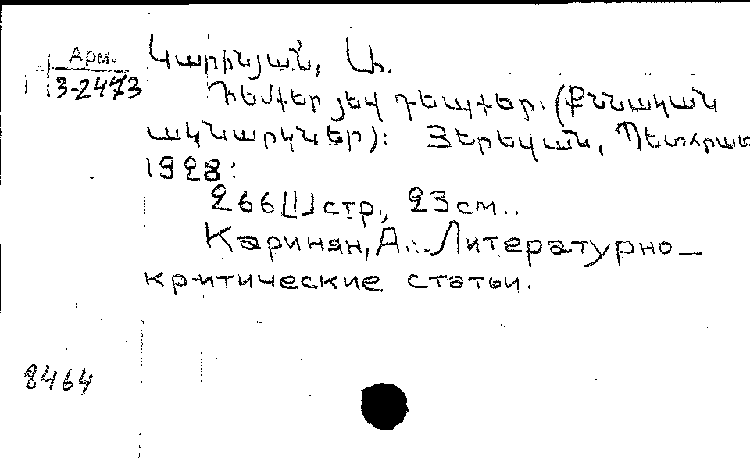 Арм.
3-2473
Կարինյան, Ա.
Դեմքեր յեվ դեպքեր. (քննական
ակնարկներ): Յերեվան, Պետհրատ
1928:
266[1] стр., 23 см..
Каринян, А.. Литературно-
критические статьи.
8464